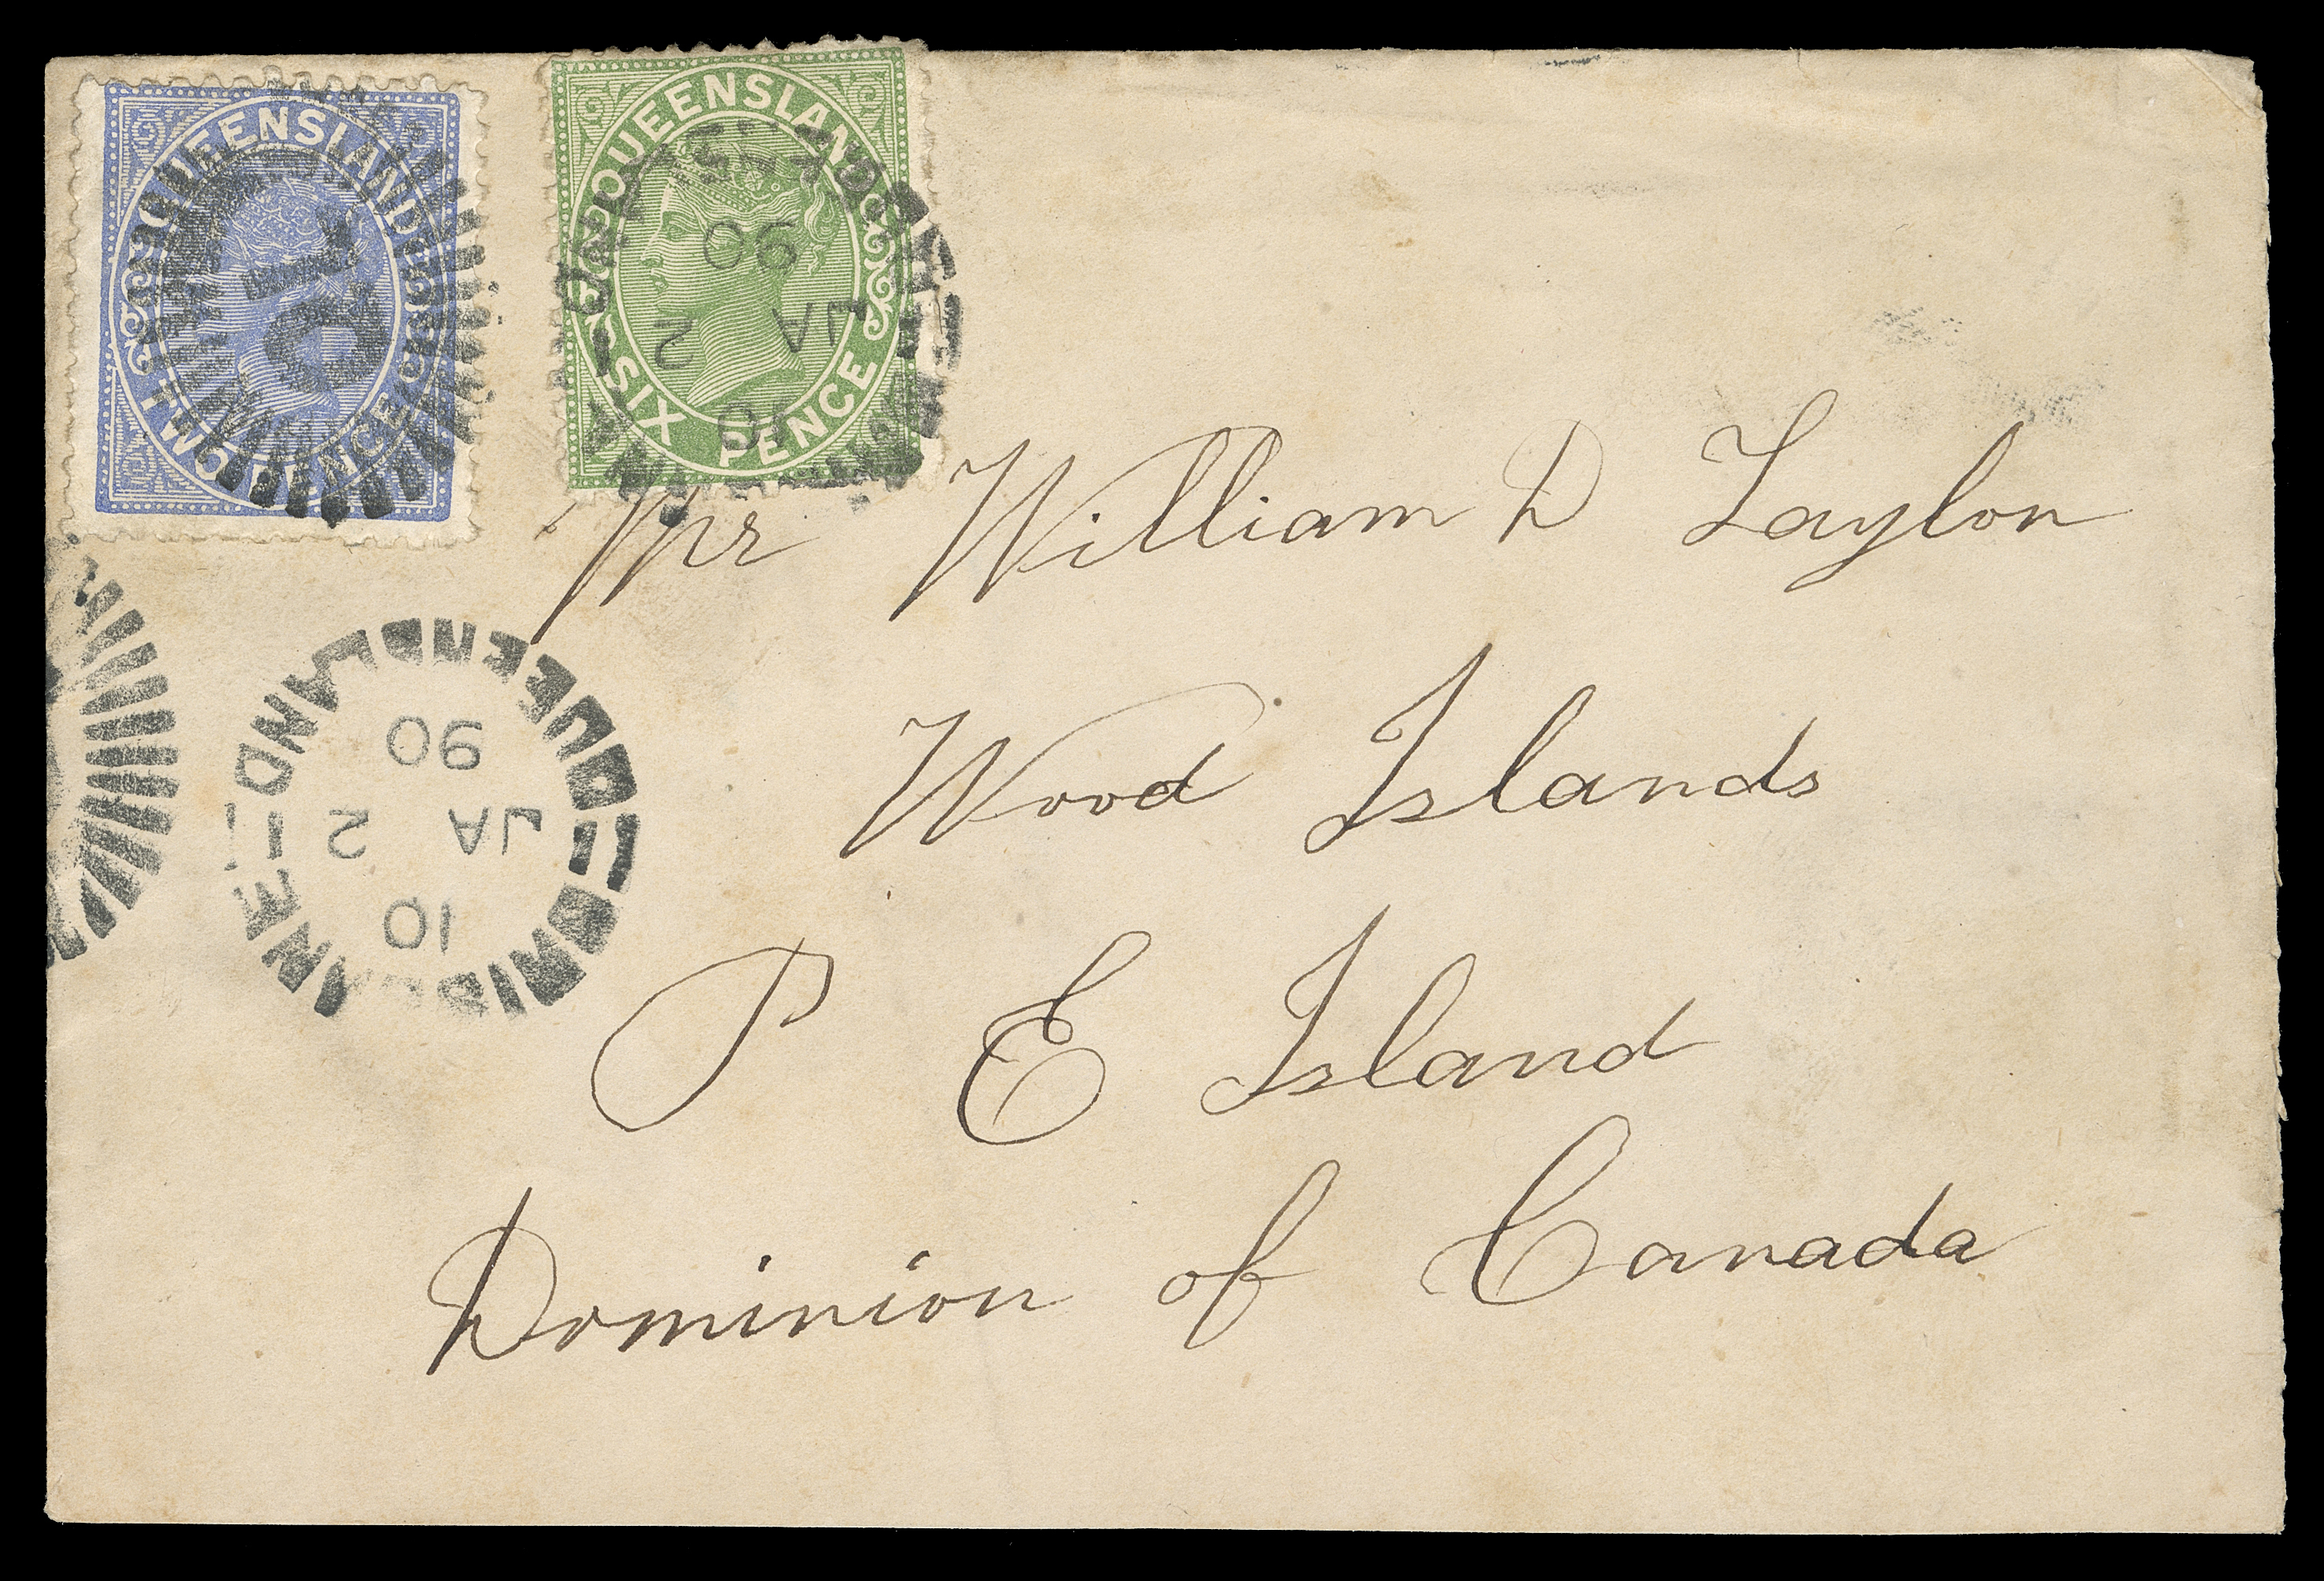 QUEENSLAND
TWO PENCE
QUEENSLAND
SIX PENCE
90
JA 2
10
QUEENSLAND
90
JA 2
10
BRISBANE
Mr William D Taylor
Wood Islands
P E Island
Dominion of Canada